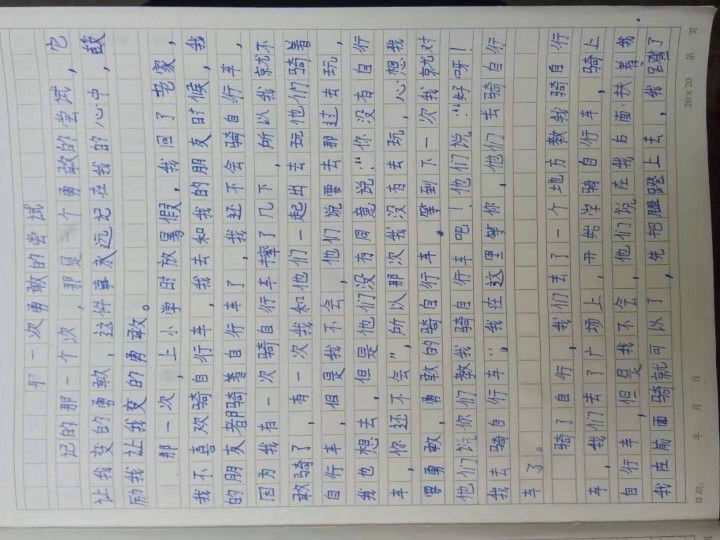 那一次勇敢的尝试
记的那一个次，那是一个勇敢的尝试，它
让我变的勇敢，这件事永远记在我的心中，鼓
励我让我变的勇敢。
那一次，上小学时放暑假，我回了老家，
我不喜欢骑自行车，我去和我的朋友时候，我
的朋友都骑着自行车了，我还不会骑自行车，
因为我有一次骑自行车摔了几下，所以我就不
敢骑了，有一次我和他们一起出去玩他们骑着
自行车，但是我不会，他们说要去那过去玩，
我也想去，但是他们没有同意说：“你没有自行
车，你还不会”，所以那次我没有去玩，心想我
要勇敢，勇敢的骑自行车。等到下一次我就对
他们说你们教我骑自行车吧！他们说：“好呀！
我去骑自行车”，我在这里等你，他们去骑自行
车了。
骑了自行，我们去了一个地方教我骑自行
车，我们去了广场上，开始学骑自行车，骑上
自行车，但是我不会，他们说在我后面扶着我
我在前面骑就可以了，先把脚蹬上去，我蹬了
日期： 年 月 日
20×20 第 页